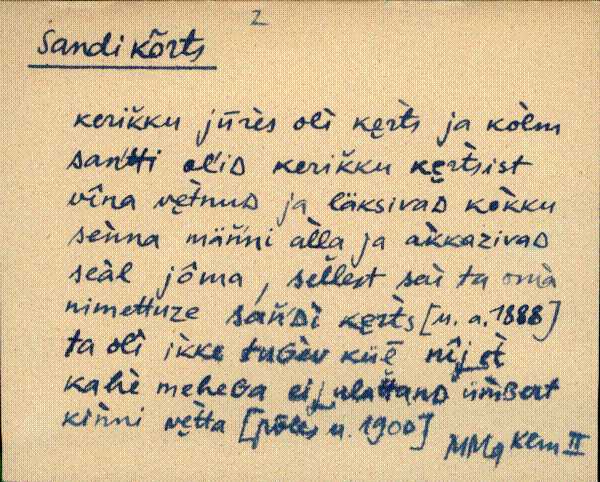 2
Sandi kõrts
kerikku jūrès olì kęr̀ts ja kòlm
santti olid kerikku kęr̀tsist
vîna vętnud ja läksivad kokku
sènna männi àlla ja àkkazivad
seàl jôma, sèllest sai ta omà
nimettuze sandì kęr̀ts [u. a. 1888]
ta olì ikke tugèv küè̄ nîj èt
kahè mehega eij ulattand ümbert
kìnni vętta [põles u. 1900]
MMg KEm II